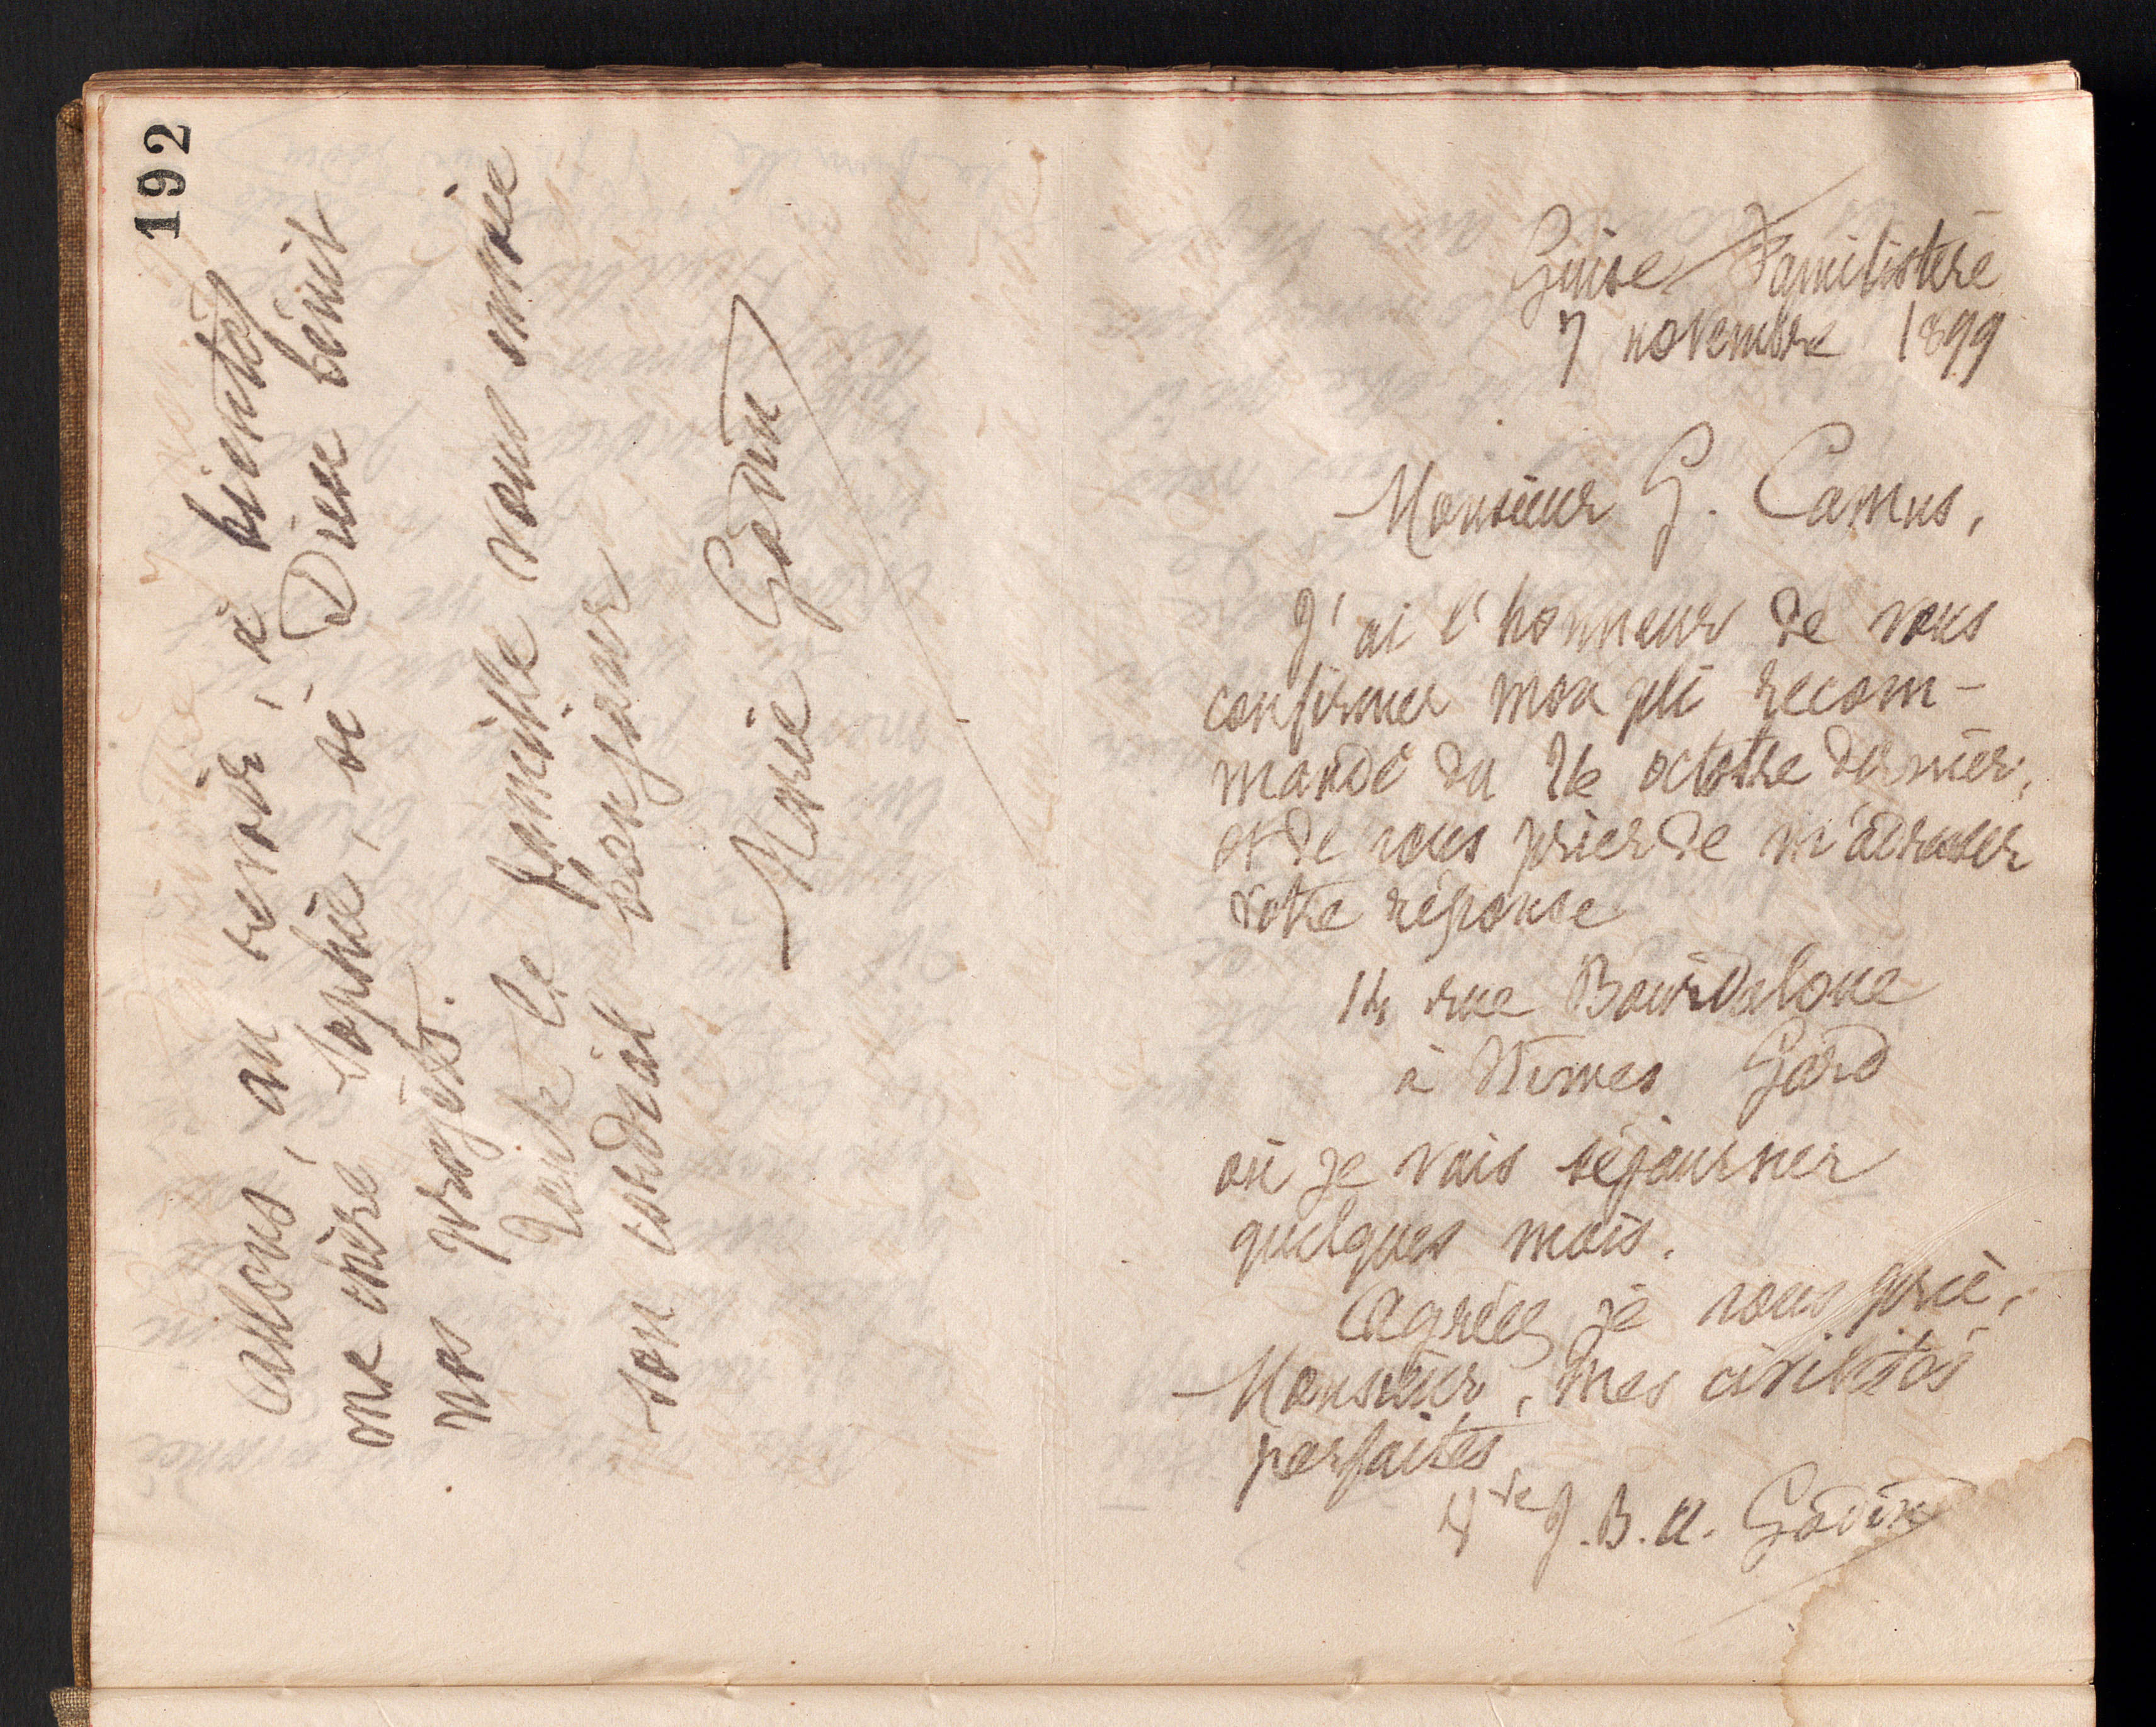 192
Allons, au revoir, à bientôt
ma chère Sophie, si Dieu bénit
nos projets.
Toute la famille vous envoie
son cordial bonjour
Marie Godin
Guise Familistère
7 novembre 1899
Monsieur G. Camus,
J'ai l'honneur de vous
confirmer mon pli recom-
mandé du 26 octobre dernier,
et de vous prier de m'adresser
votre réponse
14 rue Bourdaloue
à Nimes Gard
où je vais séjourner
quelques mois.
Agréez, je vous prie,
Monsieur, mes civilités
parfaites
Vve J. B. A. Godin